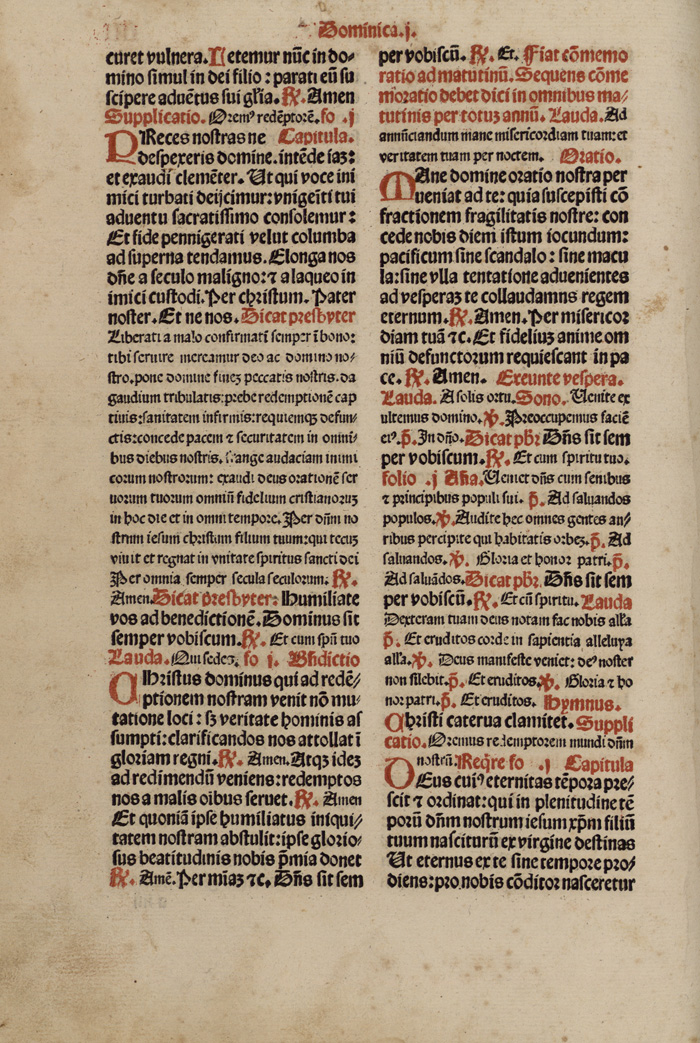 Dominica.j.
curet vulnera. Letemur nũc in do-
mino simul in dei filio : parati eũ su
scipere aduẽtus sui glĩa. ℟. Amen
Supplicatio. Oremꝰ redẽptorẽ. fo .j
PReces nostras ne Capitula.
despexeris domine. intẽde iaꝫ:
et exaudi clemẽter. Ut qui voce ini
mici turbati deijcimur: vnigeniti tui
aduentu sacratissimo consolemur :
Et fide pennigerati velut columba
ad superna tendamus. Elonga nos
dñe a seculo maligno: ⁊ a laqueo in
imici custodi. Per christum. Pater
noster. Et ne nos. Dicat presbyter
Liberati a malo confirmati semper ĩ bono:
tibi seruire mereamur deo ac domino no-
stro. pone domine fineꝫ peccatis nostris. da
gaudium tribulatis: prebe redemptionẽ cap
tiuis: sanitatem infirmis: requiemqꝫ defun-
ctis: concede pacem ⁊ securitatem in omni-
bus diebus nostris. frange audaciam inimi
corum nostrorum: exaudi deus orationẽ ser
uorum tuorum omniũ fidelium cristianoruꝫ
in hoc die et in omni tempore. Per dñm no
strum iesum christum filium tuum: qui tecuꝫ
viuit et regnat in vnitate spiritus sancti dei
Per omnia semper secula seculorum. ℟.
Amen. Dicat presbyter: Humiliate
vos ad benedictionẽ. Dominus sit
semper vobiscum. ℟. Et cum spũ tuo
Lauda. Qui sedeꝫ. fo j. Bñdictio
CHristus dominus qui ad redẽ-
ptionem nostram venit nõ mu-
tatione loci : sꝫ veritate hominis as
sumpti: clarificandos nos attollat ĩ
gloriam regni. ℟. Amen. Atqꝫ ideꝫ
ad redimendũ veniens: redemptos
nos a malis oĩbus seruet. ℟. Amen
Et quoniã ipse humiliatus iniqui-
tatem nostram abstulit: ipse glorio-
sus beatitudinis nobis p̃mia donet
℟. Amẽ. Per mĩaꝫ ⁊c. Dñs sit sem
per vobiscũ. ℟. Et. Fiat cõmemo
ratio ad matutinũ. Sequens cõme
moratio debet dici in omnibus ma-
tutinis per totuꝫ annũ. Lauda. Ad
annũciandum mane misericordiam tuam: et
veritatem tuam per noctem. Oratio.
MAne domine oratio nostra per
ueniat ad te: quia suscepisti cõ
fractionem fragilitatis nostre: con
cede nobis diem istum iocundum:
pacificum sine scandalo : sine macu
la: sine vlla tentatione aduenientes
ad vesperaꝫ te collaudamns regem
eternum. ℟. Amen. Per misericor
diam tuã ⁊c. Et fideliuꝫ anime om
niũ defunctorum requiescant in pa
ce. ℟. Amen. Exeunte vespera.
Lauda. A solis ortu. Sono. Uenite ex
ultemus domino. ℣. Preoccupemus faciẽ
eiꝰ. p̃. In dño. Dicat pbr̃ Dñs sit sem
per vobiscum. ℟. Et cum spiritu tuo.
folio .j Aña. Ueniet dñs cum senibus
⁊ principibus populi sui. p̃. Ad saluandos
populos. ℣. Audite hec omnes gentes au-
ribus percipite qui habitatis orbeꝫ. p̃. Ad
saluandos. ℣. Gloria et honor patri. p̃.
Ad saluãdos. Dicat pbr̃. Dñs sit sem
per vobiscũ. ℟. Et cũ spiritu. Lauda
Dexteram tuam deus notam fac nobis alľa
p̃. Et eruditos corde in sapientia alleluya
alľa. ℣. Deus manifeste veniet: deꝰ noster
non silebit. p̃. Et eruditos. ℣. Gloria ⁊ ho
nor patri. p̃. Et eruditos. Hymnus.
Christi caterua clamitet. Suppli
catio. Oremus redemptorem mundi dñm
nostrũ. Req̃re fo .j Capitula
DEus cuiꝰ eternitas tẽpora pre-
scit ⁊ ordinat: qui in plenitudine tẽ
porũ dñm nostrum iesum xp̃m filiũ
tuum nasciturũ ex virgine destinas
Ut eternus ex te sine tempore pro-
diens: pro nobis cõditor nasceretur